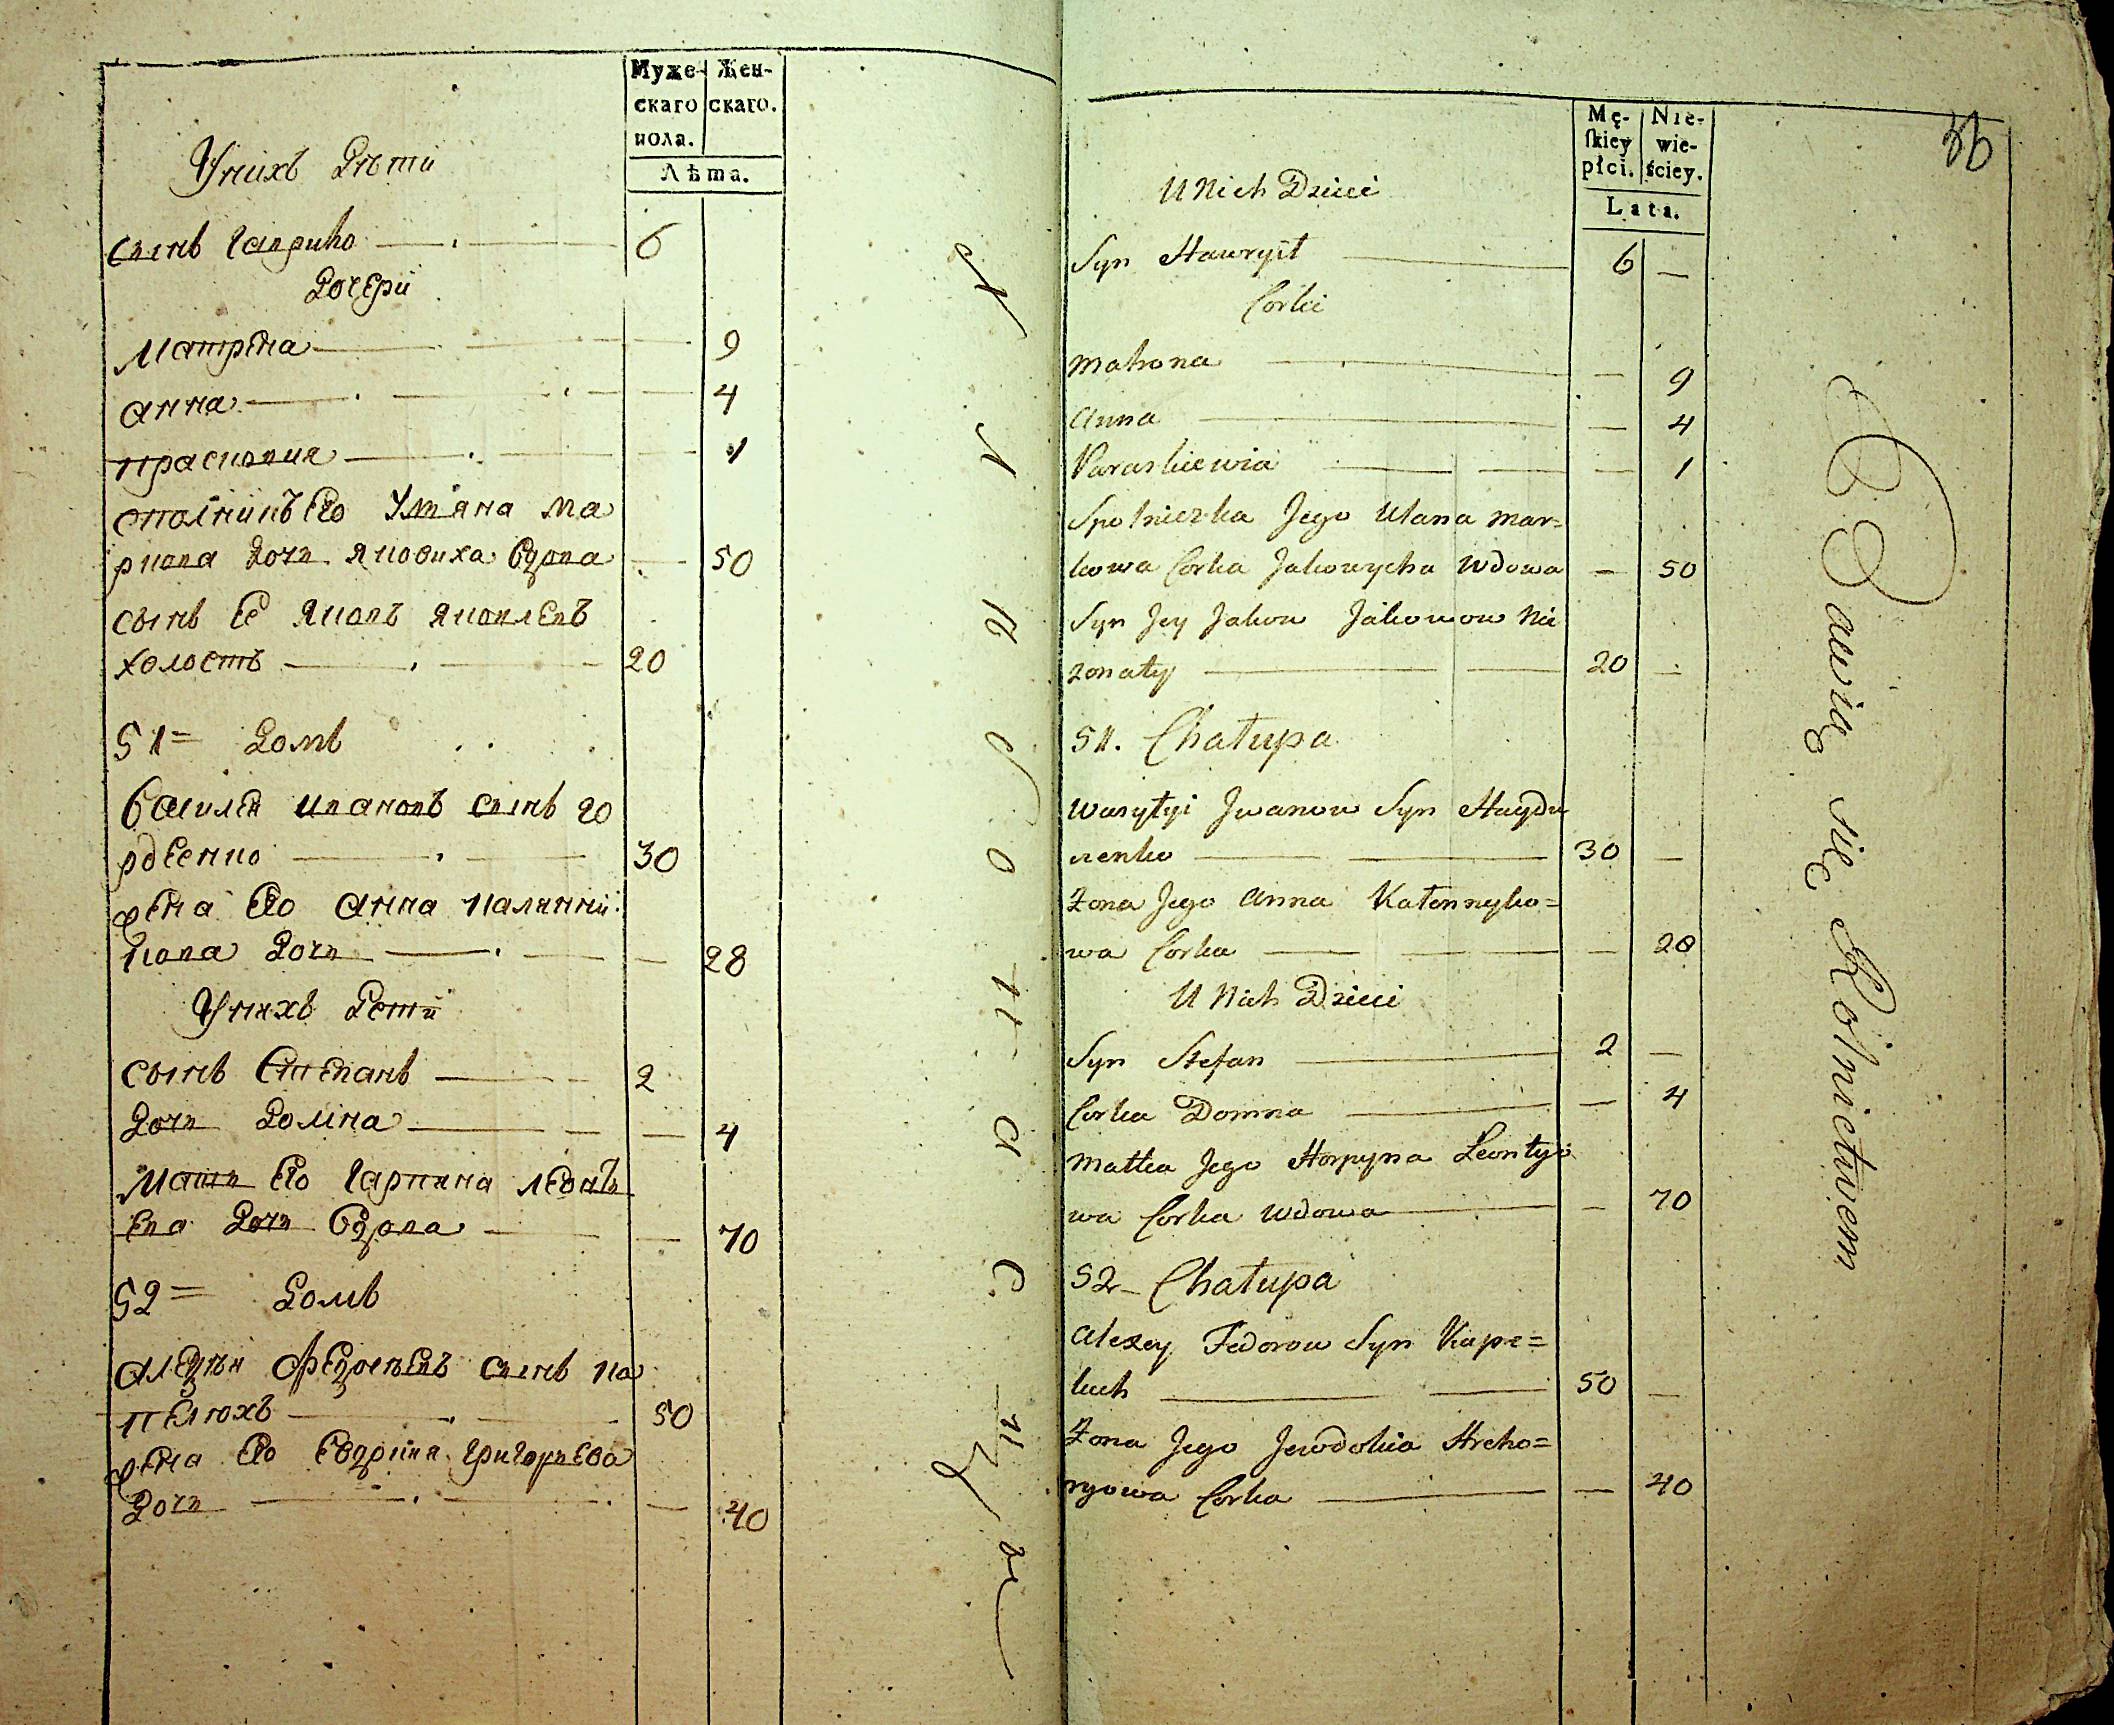 Муже- Жен-
скаго скаго.
пола.
Лѣта.
Унихъ Дѣти
сынъ Гаврило 6
Дочери
Матрена 9
Анна 4
Прасковия 1
его Уляна Ма
ркова дочь Яковиха вдова 50
сынъ ее Яковъ Яковлевъ
холостъ 20
51= Домъ
Василей Ивановъ сынъ
30
жена его Анна
кова дочь 28
Унихъ Дети
сынъ Степанъ 2
дочь Домна 4
Мать его Гарпина Леонть
ева дочь вдова 70
52= Домъ
Алексѣй сынъ Ка
пелюхъ 50
жена его Григорьева
дочь 40
36
Mę- Nie-
ſkiey wie-
płci. ściey.
Lata.
U Nich Dzieci
Syn Hawryił 6 —
Corki
Matrona — 9
Anna — 4
Paraskiewia — 1
Społniczka Jego Ulana Mar=
kowa Corka Jakowycha Wdowa — 50
Syn Jey Jakow Jakowow Nie
zonaty 20 —
51. Chałupa
Wasyłyi Jwanow Syn Haydu
czenko 30 —
Żona Jego Anna Kałennyko=
wa Corka — 28
U Nich Dzieci
Syn Stefan 2 —
Corka Domna — 4
Matka Jego Horpyna Leontyi
wa Corka Wdowa — 70
52_ Chałupa
Alexey Fedorow Syn Kape=
luch 50 —
Żona Jego Jewdokia Hreho=
ryowa Corka — 40
Bawią się Rolnictwem